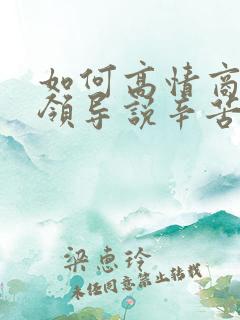 如何高情商
领导说辛苦
梁惠玲
未经同意禁止转载